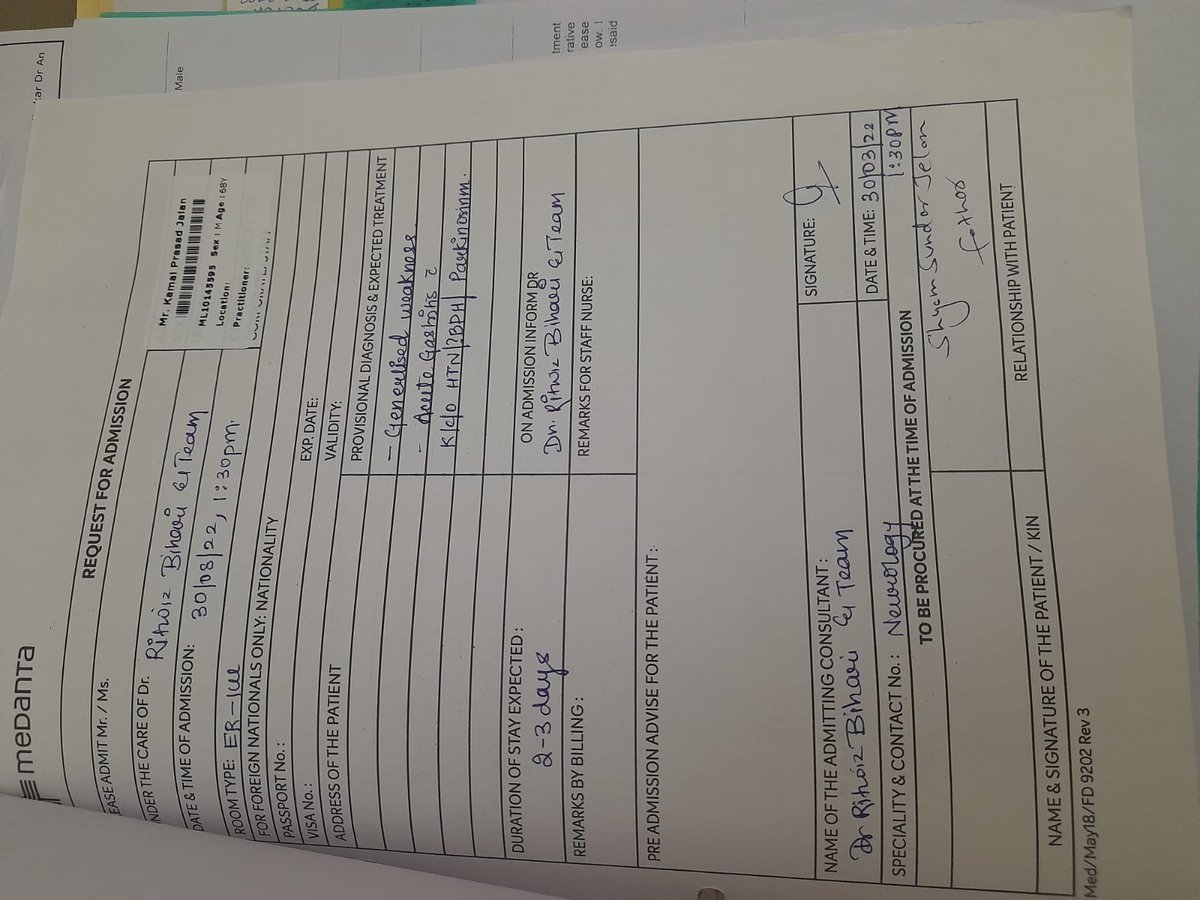 medanta
REQUEST FOR ADMISSION
EASE ADMIT Mr. / Ms.
Mr. Kamal Prasad Jalan
ML10145595 Sex : M Age : 68Y
Location:
Practitioner:
NDER THE CARE OF Dr. Ritwiz Bihari & Team
DATE & TIME OF ADMISSION: 30/03/22, 1:30pm.
ROOM TYPE: ER-
FOR FOREIGN NATIONALS ONLY: NATIONALITY
PASSPORT No.: EXP. DATE:
VISA No.: VALIDITY:
ADDRESS OF THE PATIENT
PROVISIONAL DIAGNOSIS & EXPECTED TREATMENT
- Generlised weakness.
- Acute Gastritis c̄
K/c/o HTN/?BPH/ Parkinosinm.
DURATION OF STAY EXPECTED :
2-3 days
ON ADMISSION INFORM DR
Dr. Ritwiz Bihari & Team
REMARKS BY BILLING :
REMARKS FOR STAFF NURSE:
PRE ADMISSION ADVISE FOR THE PATIENT :
NAME OF THE ADMITTING CONSULTANT :
Dr Ritwiz Bihari & Team
SIGNATURE:
SPECIALITY & CONTACT No.: Neurology
DATE & TIME: 30/03/22
1:30PM
TO BE PROCURED AT THE TIME OF ADMISSION
Shyam Sundar Jelan
father
NAME & SIGNATURE OF THE PATIENT / KIN
RELATIONSHIP WITH PATIENT
Med/May18/FD 9202 Rev 3
kar Dr An
Male
tment
rative
ease
ow. I
said